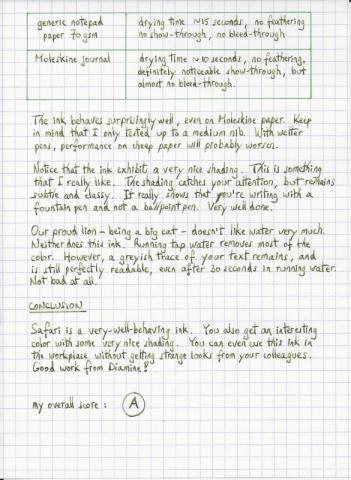 generic notepad paper 70gsm
drying time ~15 seconds, no feathering
no show-through, no bleed-through
Moleskine journal
drying time ~10 seconds, no feathering,
definitely noticeable show-through, but
almost no bleed-through.
The ink behaves surprisingly well, even on Moleskine paper. Keep
in mind that I only tested up to a medium nib. With wetter
pens, performance on cheap paper will probably worsen.
Notice that the ink exhibit a very nice shading. This is something
that I really like. The shading catches your attention, but remains
subtle and classy. It really shows that you're writing with a
fountain pen and not a ballpoint pen. Very well done.
Our proud lion - being a big cat - doesn't like water very much.
Neither does this ink. Running tap water removes most of the
color. However, a greyish trace of your text remains, and
is still perfectly readable, even after 30 seconds in running water.
Not bad at all.
CONCLUSION
Safari is a very-well-behaving ink. You also get an interesting
color with some very nice shading. You can even use this ink in
the workplace without getting strange looks from your colleagues.
Good work from Diamine!
my overall score : A